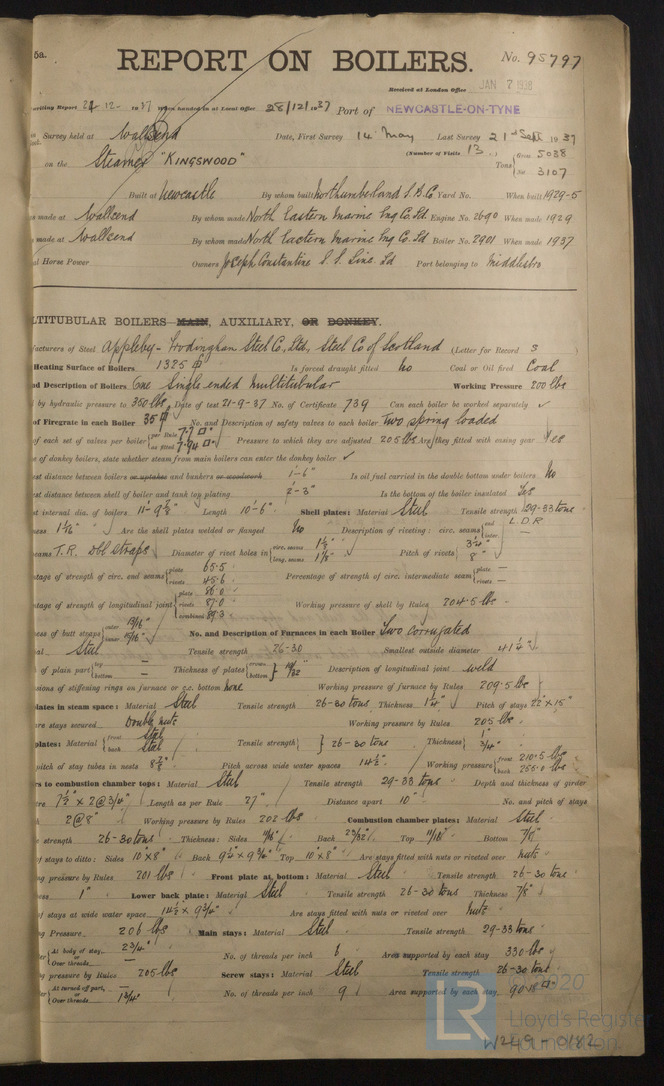 5a.
REPORT ON BOILERS.
No. 95797
Received at London Office JAN 7 1938
writing Report 24 12 1937 When handed in at Local Office 28/12/1937 Port of NEWCASTLE-ON-TYNE
Survey held at Wallsend Date, First Survey 14 May Last Survey 21st Sept 1937
on the Steamer "KINGSWOOD" (Number of Visits 13 Tons Gross 5038 Net 3107
Built at Newcastle By whom built Northumberland S.B.Co Yard No. When built 1929-5
made at Wallsend By whom made North Eastern Marine Eng Co. Ltd. Engine No. 2690 When made 1929
made at Wallsend By whom made North Eastern Marine Eng Co. Ltd Boiler No. 2901 When made 1937
Horse Power Owners Joseph Constantine S.S. Line Ltd Port belonging to Middlesbro
LTITUBULAR BOILERS MAIN, AUXILIARY, OR DONKEY.
facturers of Steel Appleby-Frodingham Steel Co., Ltd., Steel Co of Scotland (Letter for Record S )
Heating Surface of Boilers 1325 Is forced draught fitted No Coal or Oil fired Coal
nd Description of Boilers One Single ended Multitubular Working Pressure 200 lbs
by hydraulic pressure to 350 lbs Date of test 21-9-37 No. of Certificate 739 Can each boiler be worked separately ✓
of Firegrate in each Boiler 35 No. and Description of safety valves to each boiler Two spring loaded
of each set of valves per boiler per Rule 7.7 as fitted 7.94 Pressure to which they are adjusted 205 lbs Are they fitted with easing gear Yes
of donkey boilers, state whether steam from main boilers can enter the donkey boiler ✓
distance between boilers or uptakes and bunkers or woodwork 1'-6" Is oil fuel carried in the double bottom under boilers No
distance between shell of boiler and tank top plating 2'-3" Is the bottom of the boiler insulated Yes
internal dia. of boilers Length 10'-6" Shell plates: Material Steel Tensile strength 29-33 tons
1 1/16" Are the shell plates welded or flanged No Description of riveting: circ. seams end L.D.R inter. —
T.R. dbl straps Diameter of rivet holes in circ. seams long. seams 1 1/8" Pitch of rivets 3 1/4" 8"
tage of strength of circ. end seams plate 65.5 rivets 45.6 Percentage of strength of circ. intermediate seam plate — rivets —
tage of strength of longitudinal joint plate 86.0 rivets 87.0 combined 89.3 Working pressure of shell by Rules 204.5 lbs
ness of butt straps outer 13/16" inner 15/16" No. and Description of Furnaces in each Boiler Two corrugated
Steel Tensile strength 26-30 Smallest outside diameter 41 1/2"
of plain part top — bottom — Thickness of plates crown bottom 19/32" Description of longitudinal joint weld
sions of stiffening rings on furnace or c.c. bottom None Working pressure of furnace by Rules 209.5 lbs
plates in steam space: Material Steel Tensile strength 26-30 tons Thickness 1 1/4" Pitch of stays 22" x 15"
are stays secured Double nuts Working pressure by Rules 205 lbs
plates: Material front Steel back Steel Tensile strength 26-30 tons Thickness 1" 3/4"
pitch of stay tubes in nests Pitch across wide water spaces 14 1/2" Working pressure front 210.5 lbs back 255.0 lbs
rs to combustion chamber tops: Material Steel Tensile strength 29-33 tons Depth and thickness of girder
7 1/2" x 2 @ 3/4" Length as per Rule 27" Distance apart 10" No. and pitch of stays
2 @ 8" Working pressure by Rules 202 lbs Combustion chamber plates: Material Steel
strength 26-30 tons Thickness: Sides 11/16" Back 23/32" Top 11/16" Bottom 7/8"
of stays to ditto: Sides 10" x 8" Back 9 1/2" x 9 3/4" Top 10" x 8" Are stays fitted with nuts or riveted over nuts
pressure by Rules 201 lbs Front plate at bottom: Material Steel Tensile strength 26-30 tons
1" Lower back plate: Material Steel Tensile strength 26-30 tons Thickness 7/8"
of stays at wide water space 14 1/2 x 9 3/4" Are stays fitted with nuts or riveted over nuts
Pressure 206 lbs Main stays: Material Steel Tensile strength 29-33 tons
At body of stay, or Over threads 2 3/4" No. of threads per inch 6 Area supported by each stay
pressure by Rules 205 lbs Screw stays: Material Steel Tensile strength 26-30 tons
At turned off part, or Over threads — 1 3/4" No. of threads per inch 9 Area supported by each stay
LR
2020
Lloyd's Register
Foundation
W249-0182